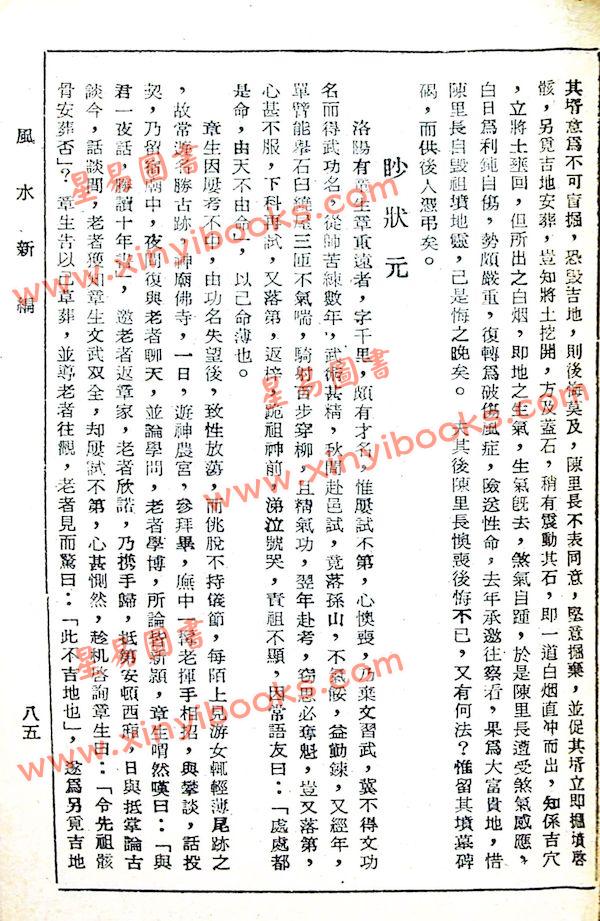 其壻意爲不可盲掘，恐毀吉地，則後悔莫及，陳里長不表同意，堅意掘棄，並促其壻立即掘墳啓
骸，另覓吉地安葬，豈知將土挖開，方及蓋石，稍有震動其石，即一道白烟直冲而出，知係吉穴
，立將土壅回，但所出之白烟，即地之生氣，生氣旣去，煞氣自踵，於是陳里長遭受煞氣感應，
白日爲利鈍自傷，勢頗嚴重，復轉爲破傷風症，險送性命，去年承邀往察看，果爲大富貴地，惜
陳里長自毀祖墳地靈，己是悔之晚矣。夫其後陳里長懊喪後悔不已，又有何法？惟留其墳墓碑
碣，而供後人憑弔矣。
眇狀元
洛陽有 生章重遠者，字千里，頗有才名，惟屢試不第，心懊喪，乃棄文習武，冀不得文功
名而得武功名，從師苦練數年，武術甚精，秋闈赴邑試，竟落孫山，不氣餒，益勤鍊，又經年，
單臂能舉石臼繞屋三匝不氣喘，騎射百步穿柳，且精氣功，翌年赴考，竊思必奪魁，豈又落第，
心甚不服，下科再試，又落第，返梓，跪祖神前，涕泣號哭，責祖不顯，因常語友曰：「處處都
是命，由天不由命」，以己命薄也。
章生因屢考不中，由功名失望後，致性放蕩，而佻脫不持儀節，每陌上見游女輒輕薄尾跡之
，故常遊名勝古跡，神廟佛寺，一日，遊神農宮，參拜畢，廡中一 老揮手相招，與攀談，話投
契，乃留宿廟中，夜間復與老者聊天，並論學問，老者學博，所論皆新穎，章生喟然嘆曰：「與
君一夜話，勝讀十年書」，邀老者返章家，老者欣諾，乃携手歸，抵第安頓西廂，日與抵掌論古
談今，話談間，老者獲知章生文武双全，却屢試不第，心甚惻然，趁机咨詢章生曰：「令先祖骸
骨安葬否」？章生告以已卓葬，並導老者往觀，老者見而驚曰：「此不吉地也」，遂爲另覓吉地
風水新編
八五
星易圖書
www.xinyibooks.com
星易圖書
www.xinyibooks.com
星易圖書
www.xinyibooks.com
星易圖書
www.xinyibooks.com